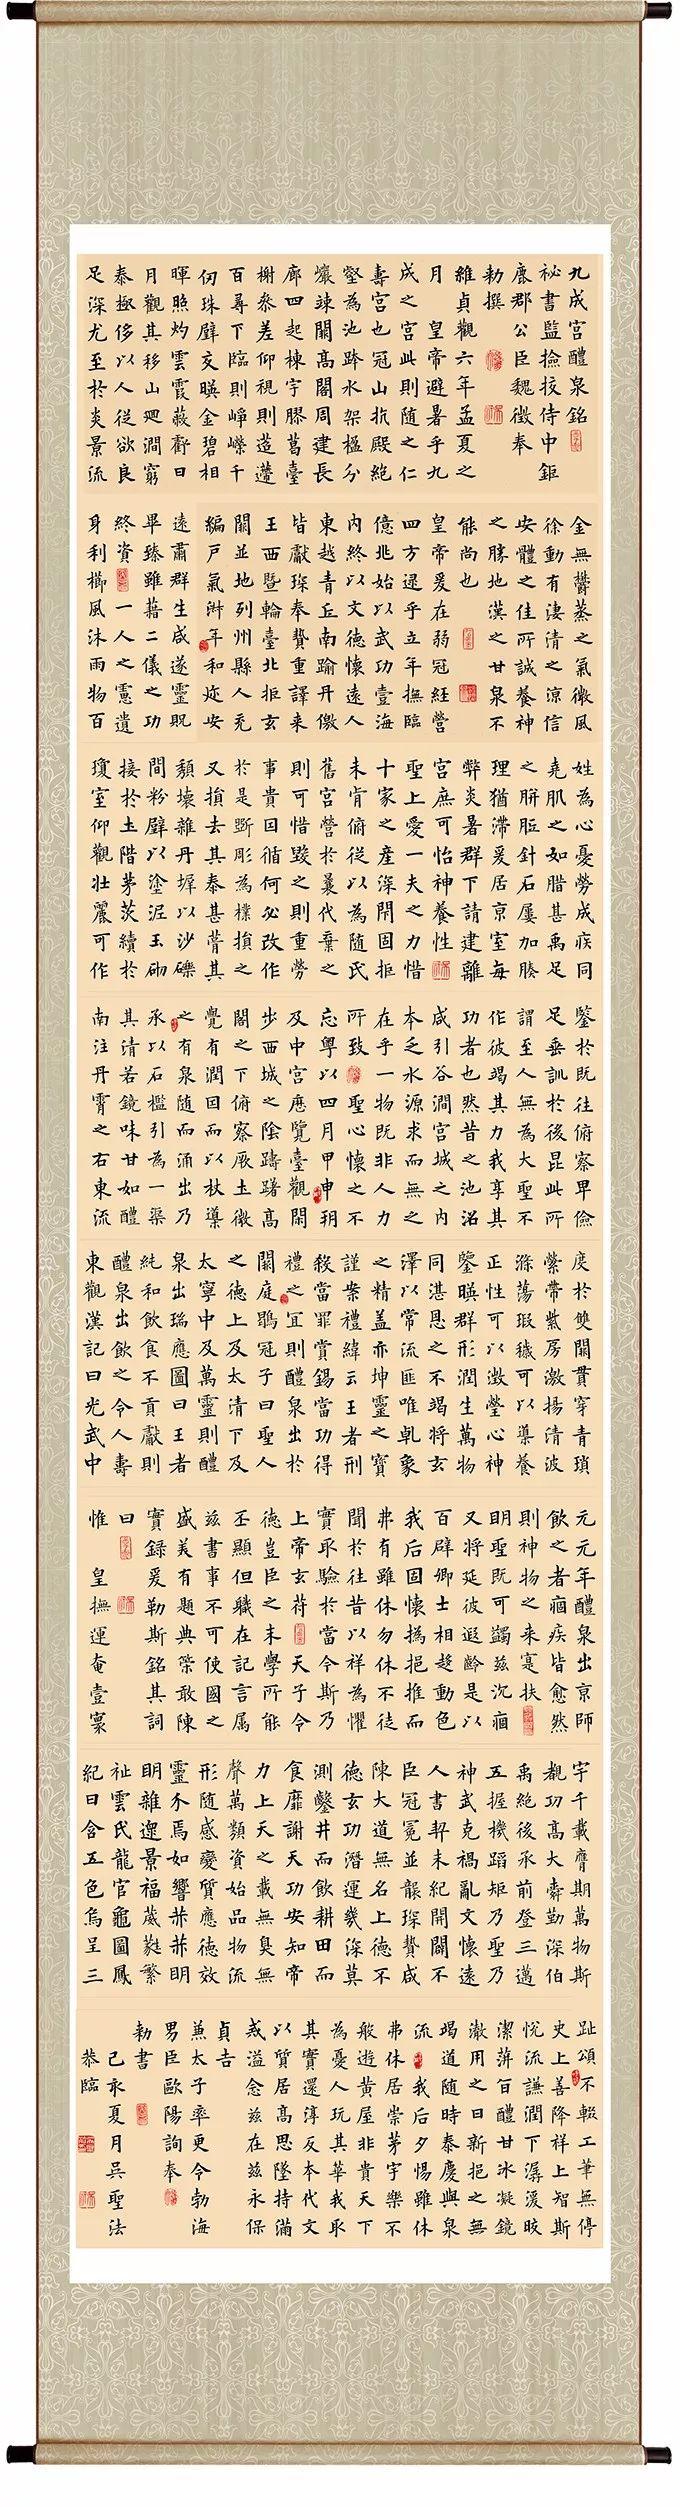 九成宮醴泉銘
祕書監撿挍侍中鉅
鹿郡公臣魏徵奉
勅撰
維貞觀六年孟夏之
月 皇帝避暑乎九
成之宮此則随之仁
壽宮也冠山抗殿絕
壑為池跨水架楹分
巖竦闕高閣周建長
廊四起棟宇膠葛臺
榭參差仰視則迢遰
百尋下臨則崢嶸千
仞珠璧交暎金碧相
暉照灼雲霞蔽虧日
月觀其移山廻澗窮
泰極侈以人從欲良
足深尤至於炎景流
金無欝蒸之氣微風
徐動有淒清之涼信
安體之佳所誠養神
之勝地漢之甘泉不
能尚也
皇帝爰在弱冠經營
四方逮乎立年撫臨
億兆始以武功壹海
內終以文德懷遠人
東越青丘南踰丹儌
皆獻琛奉贄重譯來
王西暨輪臺北拒玄
闕並地列州縣人充
編戶氣淑年和迩安
遠肅群生咸遂靈貺
畢臻雖藉二儀之功
終資 一人之慮遺
身利櫛風沐雨物百
姓為心憂勞成疾同
堯肌之如腊甚禹足
之胼胝針石屢加腠
理猶滯爰居京室每
弊炎暑群下請建離
宮庶可怡神養性
聖上愛一夫之力惜
十家之產深閉固拒
未肯俯從以為随氏
舊宮營於曩代棄之
則可惜毀之則重勞
事貴因循何必改作
於是斲彫為樸損之
又損去其泰甚葺其
頹壞雜丹墀以沙礫
間粉壁以塗泥玉砌
接於土階茅茨續於
瓊室仰觀壯麗可作
鑒於既往俯察卑儉
足垂訓於後昆此所
謂至人無為大聖不
作彼竭其力我享其
功者也然昔之池沼
咸引谷澗宮城之內
本乏水源求而無之
在乎一物既非人力
所致 聖心懷之不
忘粤以四月甲申朔
及中宮歷覽臺觀閑
步西城之陰躊躇高
閣之下俯察厥土微
覺有潤因而以杖導
之有泉随而涌出乃
承以石檻引為一渠
其清若鏡味甘如醴
南注丹霄之右東流
度於雙闕貫穿青瑣
縈帶紫房激揚清波
滌蕩瑕穢可以導養
正性可以澂瑩心神
鑒暎群形潤生萬物
同湛恩之不竭將玄
澤以常流匪唯乹象
之精盖亦坤靈之寶
謹案禮緯云王者刑
殺當罪賞錫當功得
禮之宜則醴泉出於
闕庭鶡冠子曰聖人
之德上及太清下及
太寧中及萬靈則醴
泉出瑞應圖曰王者
純和飲食不貢獻則
醴泉出飲之令人壽
東觀漢記曰光武中
元元年醴泉出京師
飲之者痼疾皆愈然
則神物之來寔扶
明聖既可蠲茲沉痼
又將延彼遐齡是以
百辟卿士相趍動色
我后固懷撝挹推而
弗有雖休勿休不徒
聞於往昔以祥為懼
實取驗於當今斯乃
上帝玄苻 天子令
德豈臣之末學所能
丕顯但職在記言属
茲書事不可使國之
盛美有典策敢陳
實錄爰勒斯銘其詞
曰
惟 皇撫運奄壹寰
宇千載膺期萬物斯
覩功高大舜勤深伯
禹絕後承前登三邁
五握機蹈矩乃聖乃
神武克禍亂文懷遠
人書契未紀開闢不
臣冠冕並襲琛贄咸
陳大道無名上德不
德玄功潛運幾深莫
測鑿井而飲耕田而
食靡謝天功安知帝
力上天之載無臭無
聲萬類資始品物流
形随感變質應德效
靈介焉如響赫赫明
明雜遝景福葳蕤繁
祉雲氏龍官龜圖鳳
紀日含五色烏呈三
趾頌不輟工筆無停
史上善降祥上智斯
悅流謙潤下潺湲皎
潔蓱旨醴甘冰凝鏡
澈用之日新挹之無
竭道随時泰慶與泉
流我后夕惕雖休
弗休居崇茅宇樂不
般遊黃屋非貴天下
為憂人玩其華我取
其實還淳反本代文
以質居高思墜持滿
戒溢念茲在茲永保
貞吉
兼太子率更令勃海
男臣歐陽詢奉
勅書
己亥夏月吳聖法
恭臨